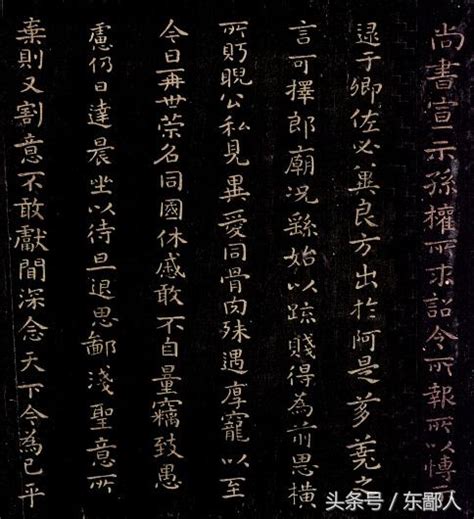 尚書宣示孫權所求詔令所報所以博
逮于卿佐必冀良方出於阿是芻蕘之
言可擇郎廟况繇始以疏賤得為前恩橫
所貯睨公私見異愛同骨肉殊遇厚寵以至
今日再世榮名同國休慼敢不自量竊致愚
慮仍日達晨坐以待旦退思鄙淺聖意所
棄則又割意不敢獻聞深念天下今為已平
头条号 / 东鄙人